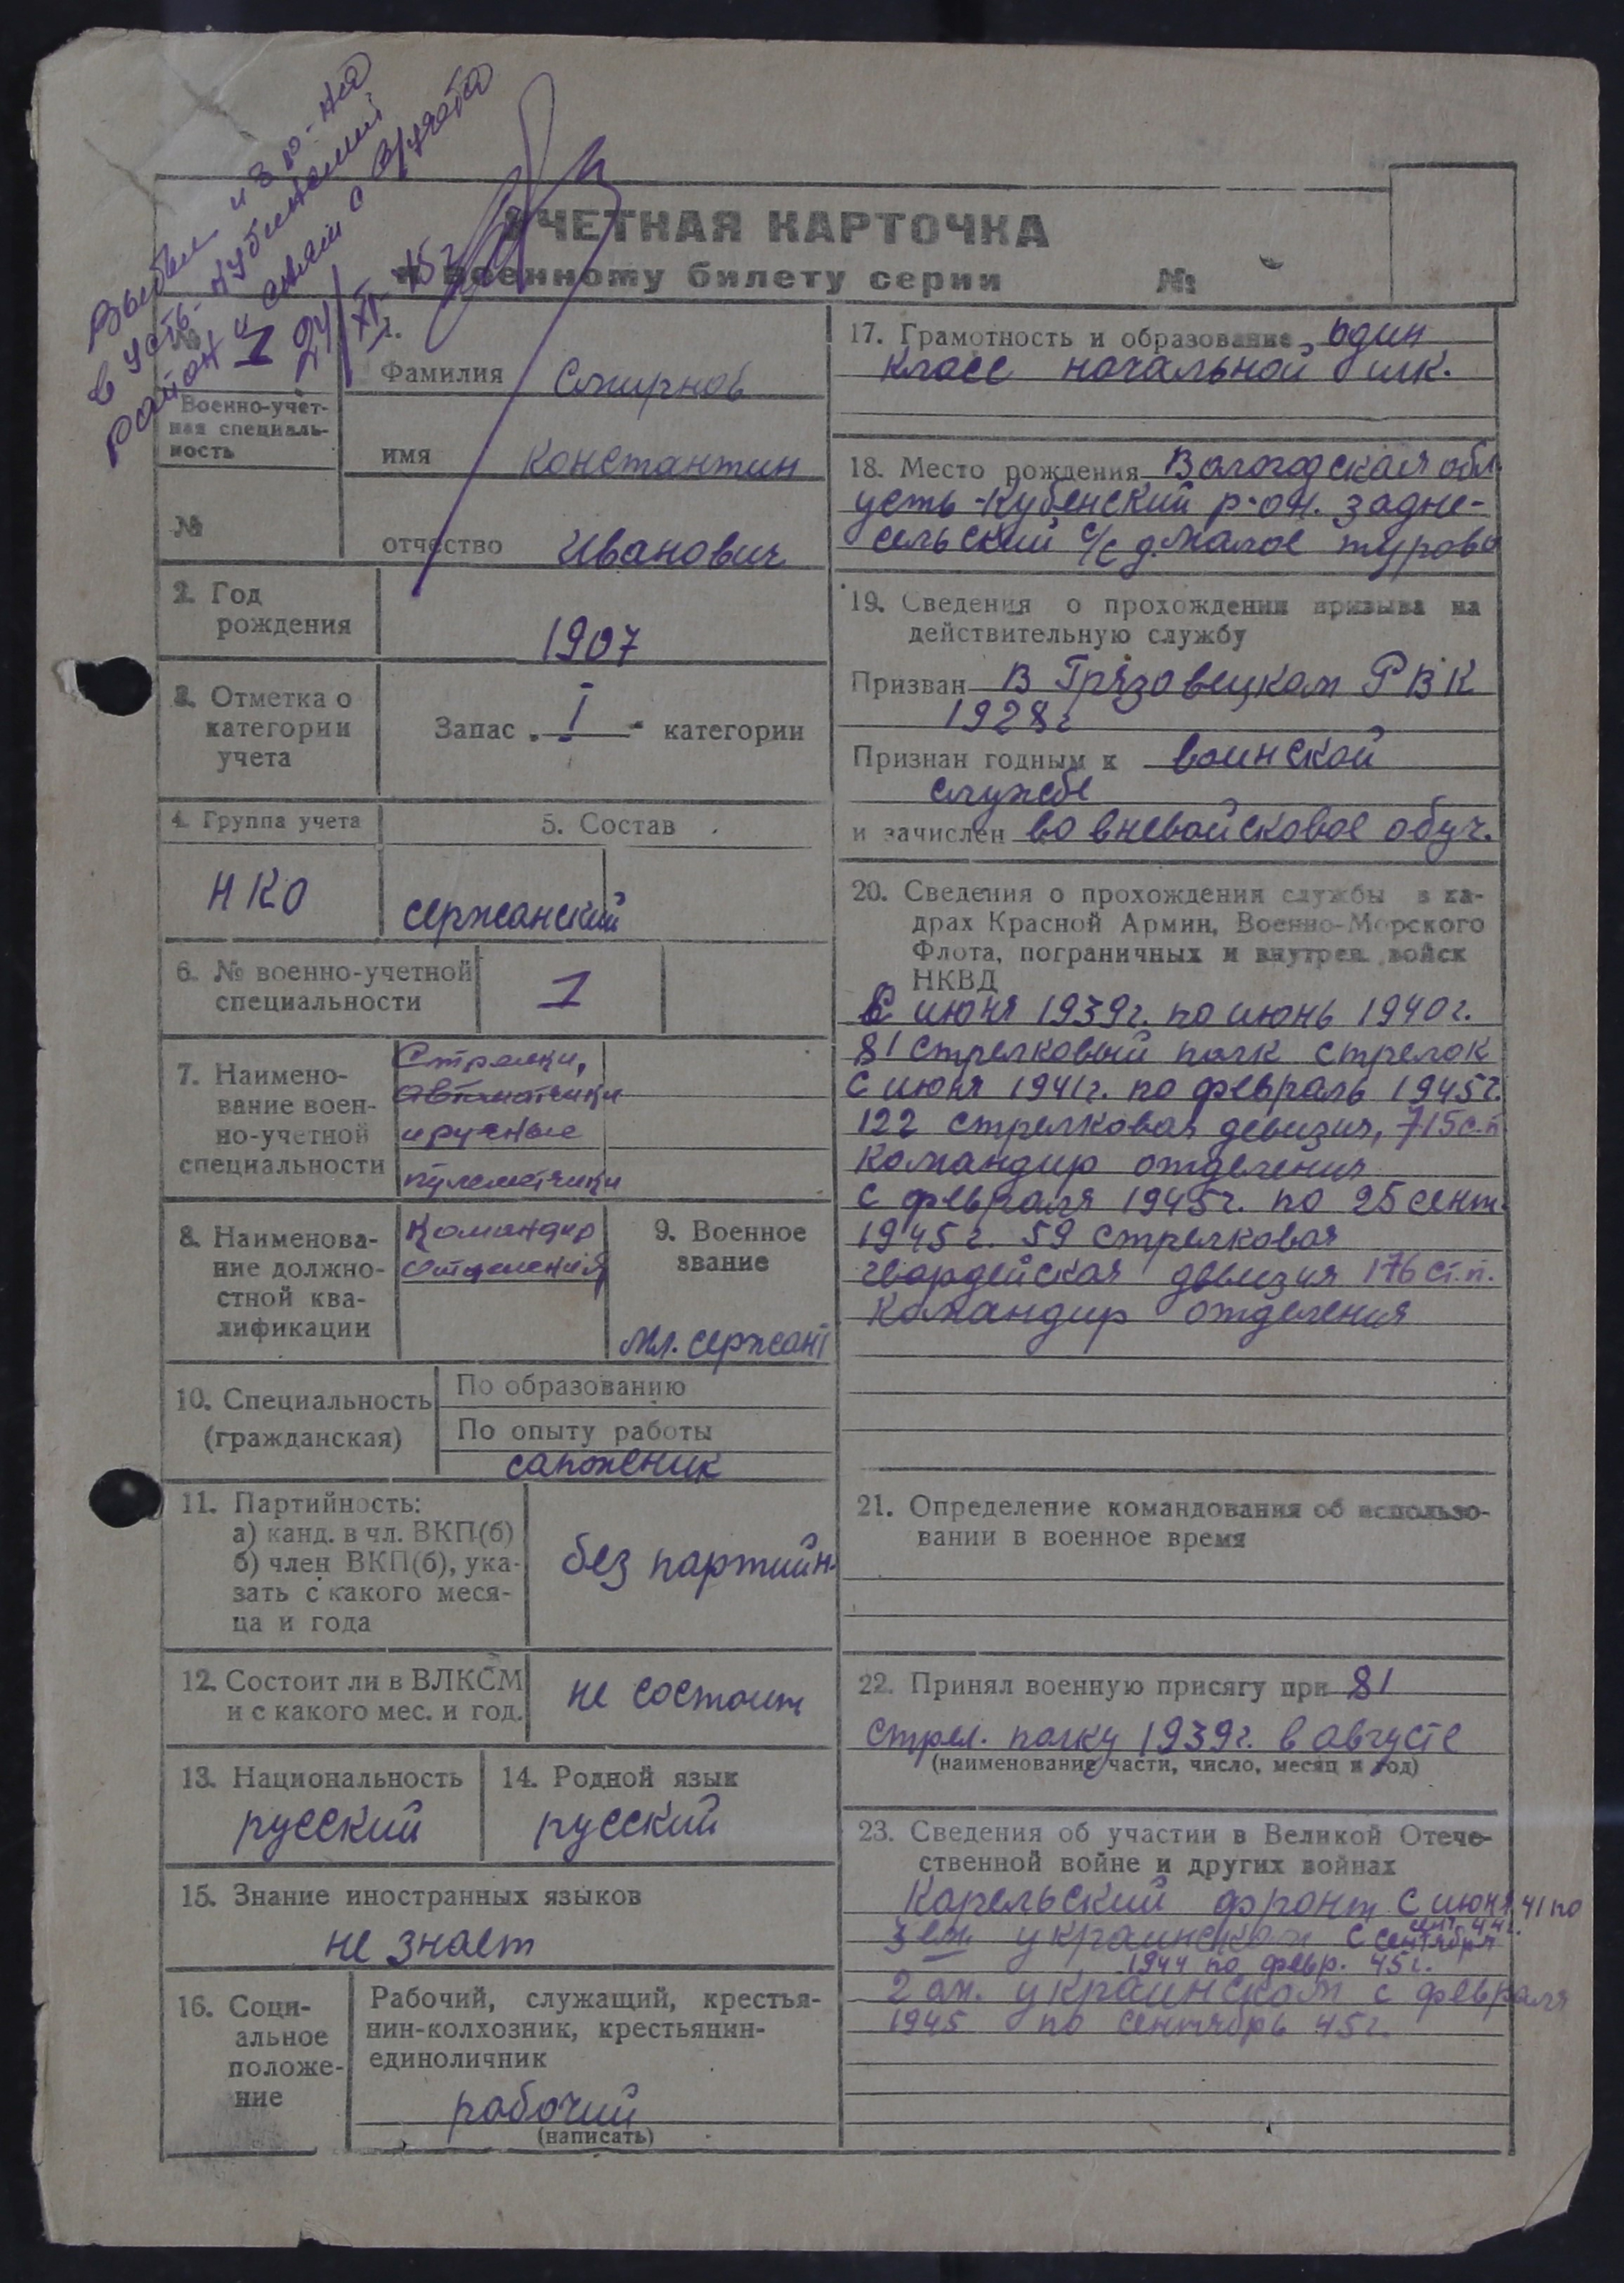 Выбыл из р-на
в Усть-Кубинский
район и снят с в/учета
24/XI-45г
УЧЕТНАЯ КАРТОЧКА
к военному билету серии №
№ 1
Военно-учет-
ная специаль-
ность
№
1.
Фамилия Смирнов
имя Константин
отчество Иванович
2. Год
рождения
1907
3. Отметка о
категории
учета
Запас „ I “ категории
4. Группа учета
НКО
5. Состав
сержанский
6. № военно-учетной
специальности
1
7. Наимено-
вание воен-
но-учетной
специальности
Стрелки,
автоматчики
и ручные
пулеметчики
8. Наименова-
ние должно-
стной ква-
лификации
Командир
отделения
9. Военное
звание
мл. сержант
10. Специальность
(гражданская)
По образованию
По опыту работы
сапожник
11. Партийность:
а) канд. в чл. ВКП(б)
б) член ВКП(б), ука-
зать с какого меся-
ца и года
без партийн.
12. Состоит ли в ВЛКСМ
и с какого мес. и год.
не состоит
13. Национальность
русский
14. Родной язык
русский
15. Знание иностранных языков
не знает
16. Соци-
альное
положе-
ние
Рабочий, служащий, крестья-
нин-колхозник, крестьянин-
единоличник
рабочий
(написать)
17. Грамотность и образование один
класс начальной шк.
18. Место рождения Вологодская обл.
Усть-Кубенский р-он. Задне-
сельский с/с д. Малое Турово
19. Сведения о прохождении призыва на
действительную службу
Призван В Грязовецком РВК
1928г
Признан годным к воинской
службе
и зачислен во вневойсковое обуч.
20. Сведения о прохождении службы в ка-
драх Красной Армии, Военно-Морского
Флота, пограничных и внутрен. войск
НКВД
С июня 1939г. по июнь 1940г.
81 стрелковый полк стрелок
С июня 1941г. по февраль 1945г.
122 стрелковая девизия, 715 с.п
командир отделения
С февраля 1945г. по 25 сент.
1945г. 59 стрелковая
гвардейская девизия 176 ст.п.
командир отделения
21. Определение командования об использо-
вании в военное время
22. Принял военную присягу при 81
стрел. полку 1939г. в августе
(наименование части, число, месяц и год)
23. Сведения об участии в Великой Отече-
ственной войне и других войнах
Карельский фронт с июня 41 по
сент. 44г.
3 ем украинском с сентября
1944 по февр. 45г.
2 ом. украинском с февраля
1945 по сентябрь 45г.